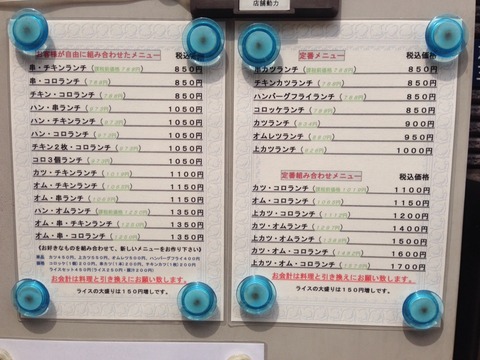 店舗動力
お客様が自由に組み合わせたメニュー 税込価格
串・チキンランチ 850円
串・コロランチ 850円
チキン・コロランチ 850円
ハン・串ランチ 1050円
ハン・チキンランチ 1050円
ハン・コロランチ 1050円
チキン2枚・コロランチ 1050円
コロ3個ランチ 1050円
カツ・チキンランチ 1100円
オム・チキンランチ 1150円
オム・串ランチ 1150円
ハン・オムランチ 1350円
オム・串・チキンランチ 1350円
オム・串・コロランチ 1350円
《お好きなものを組み合わせて、新しいメニューをお作り下さい》
単品 カツ450円、上カツ550円、オムレツ500円、ハンバーグフライ400円
ライスセット450円(ライス250円・豚汁200円)
お会計は料理と引き換えにお願い致します。
ライスの大盛りは150円増しです。
定番メニュー 税込価格
串カツランチ 850円
チキンカツランチ 850円
ハンバーグフライランチ 850円
コロッケランチ 850円
カツランチ 900円
オムレツランチ 950円
上カツランチ 1000円
定番組み合わせメニュー 税込価格
カツ・コロランチ 1100円
オム・コロランチ 1150円
上カツ・コロランチ 1200円
カツ・オムランチ 1400円
上カツ・オムランチ 1500円
カツ・オム・コロランチ 1600円
上カツ・オム・コロランチ 1700円
お会計は料理と引き換えにお願い致します。
ライスの大盛りは150円増しです。